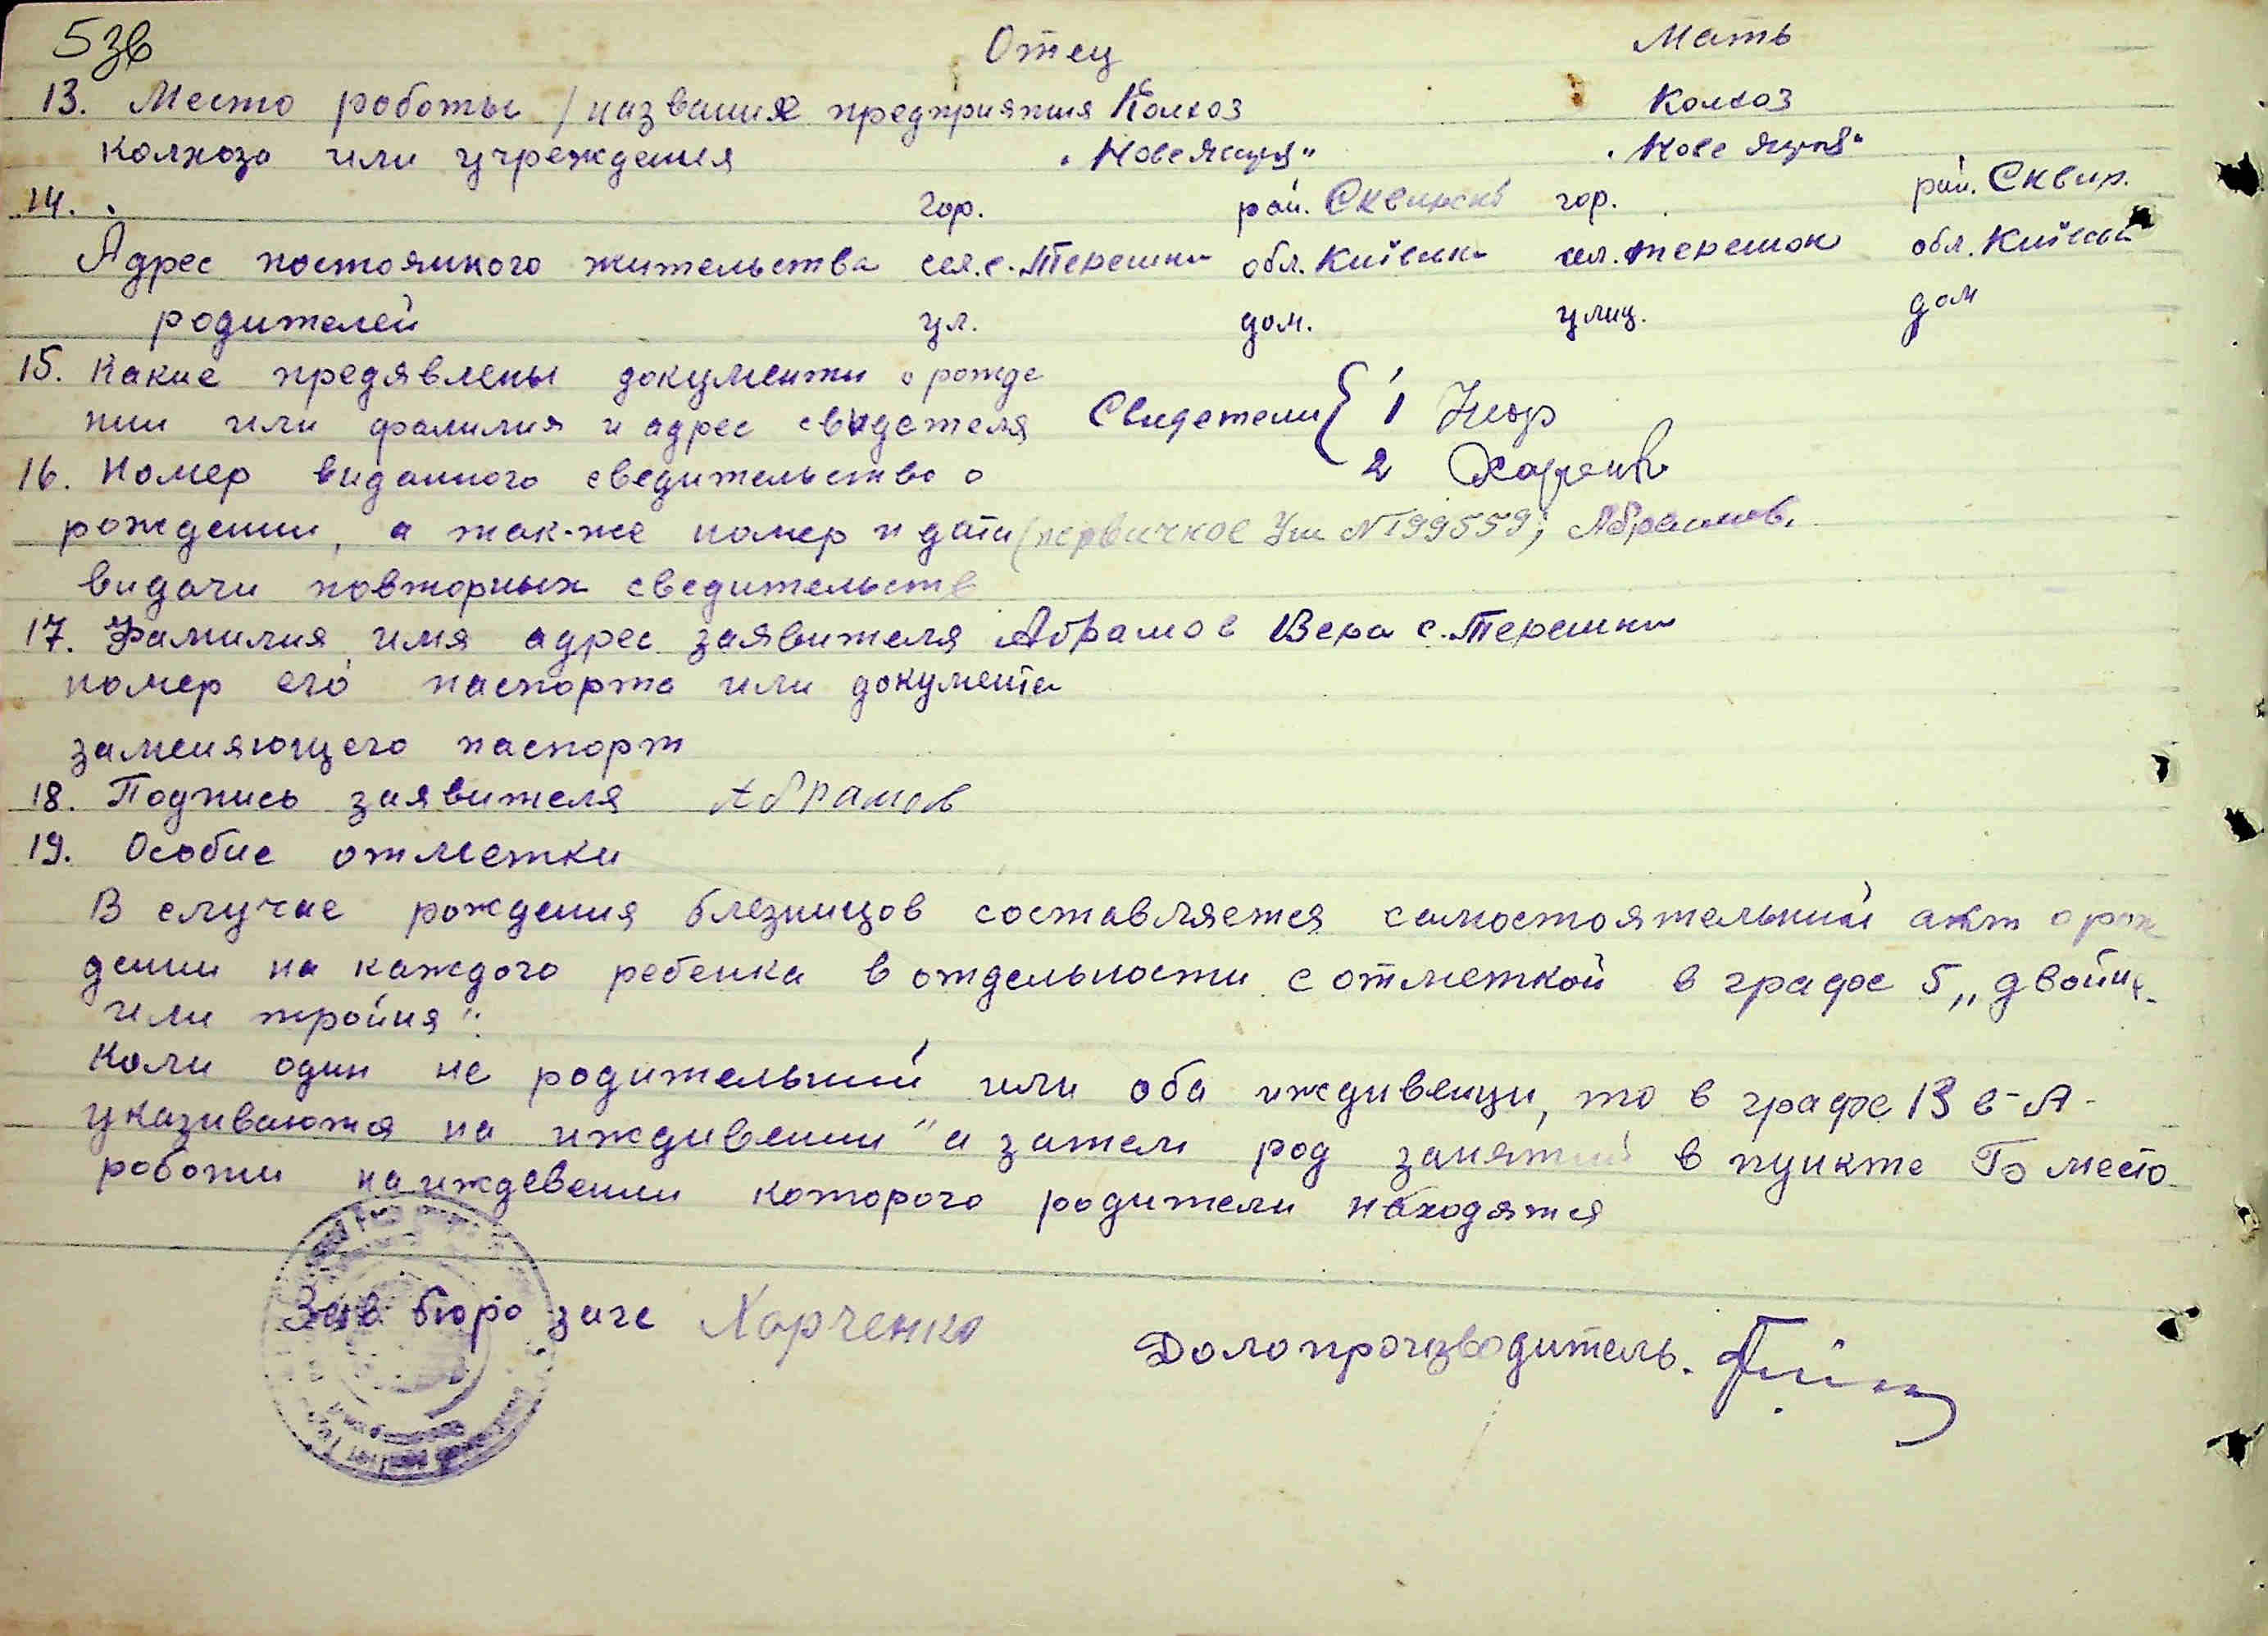 5зв
Отец Мать
13. Место роботы / название предприятия Колхоз Колхоз
колхоза или учреждения „Нове життя“ „Нове життя“
14. гор. рай. Сквирск гор. рай. Сквир.
Адрес постоянного жительства сел. с. Терешки обл. Київськ сел. Терешки обл. Київськ
родителей ул. дом. улиц. дом
15. Какие предявлены документы о рожде
нии или фамилия и адрес свидетеля Свидетели { 1
2
16. Номер виданного сведительство о
рождении, а так-же номер и дата (первичное № 199559; Абрамов.
видачи повторных сведительств
17. Фамилия имя адрес заявителя Абрамов Вера с. Терешки
номер его паспорта или документа
заменяющего паспорт
18. Подпись заявителя Абрамов
19. Особие отметки
В случае рождения близницов составляется самостоятельний акт о рож
дении на каждого ребенка в отдельности с отметкой в графе 5 „двойня
или тройня“.
Коли один не родительший или оба иждивенци, то в графе 13 в-А-
указиваются на иждивении“ а затем род занятий в пункте Б место
роботи на иждевении которого родители находятся
Зав бюро загс Харченко
Долопроизводитель.